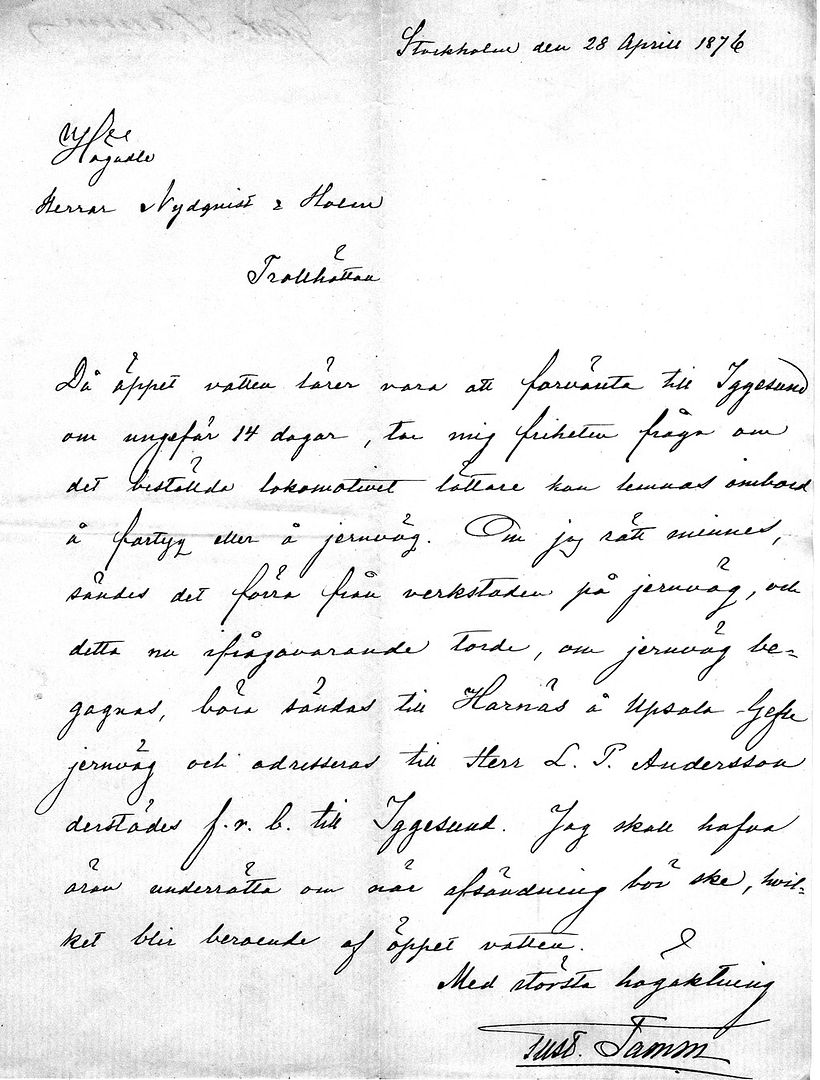 Stockholm den 28 April 1876
Högädle
Herrar Nydqvist & Holm
Trollhättan
Då öppet vatten lärer vara att förvänta till Iggesund
om ungefär 14 dagar, tar mig friheten fråga om
det beställda lokomotivet lättare kan lemnas ombord
å fartyg eller å jernväg. Om jag rätt minnes,
sändes det förra från verkstaden på jernväg, och
detta nu ifrågavarande torde, om jernväg be=
gagnas, böra sändas till Harnäs å Upsala Gefle
jernväg och adresseras till Herr L. P. Andersson
derstädes f.v.b. till Iggesund. Jag skall hafva
äran underrätta om när afsändning bör ske, hvil=
ket blir beroende af öppet vatten.
Med största högaktning
Gust. Tamm